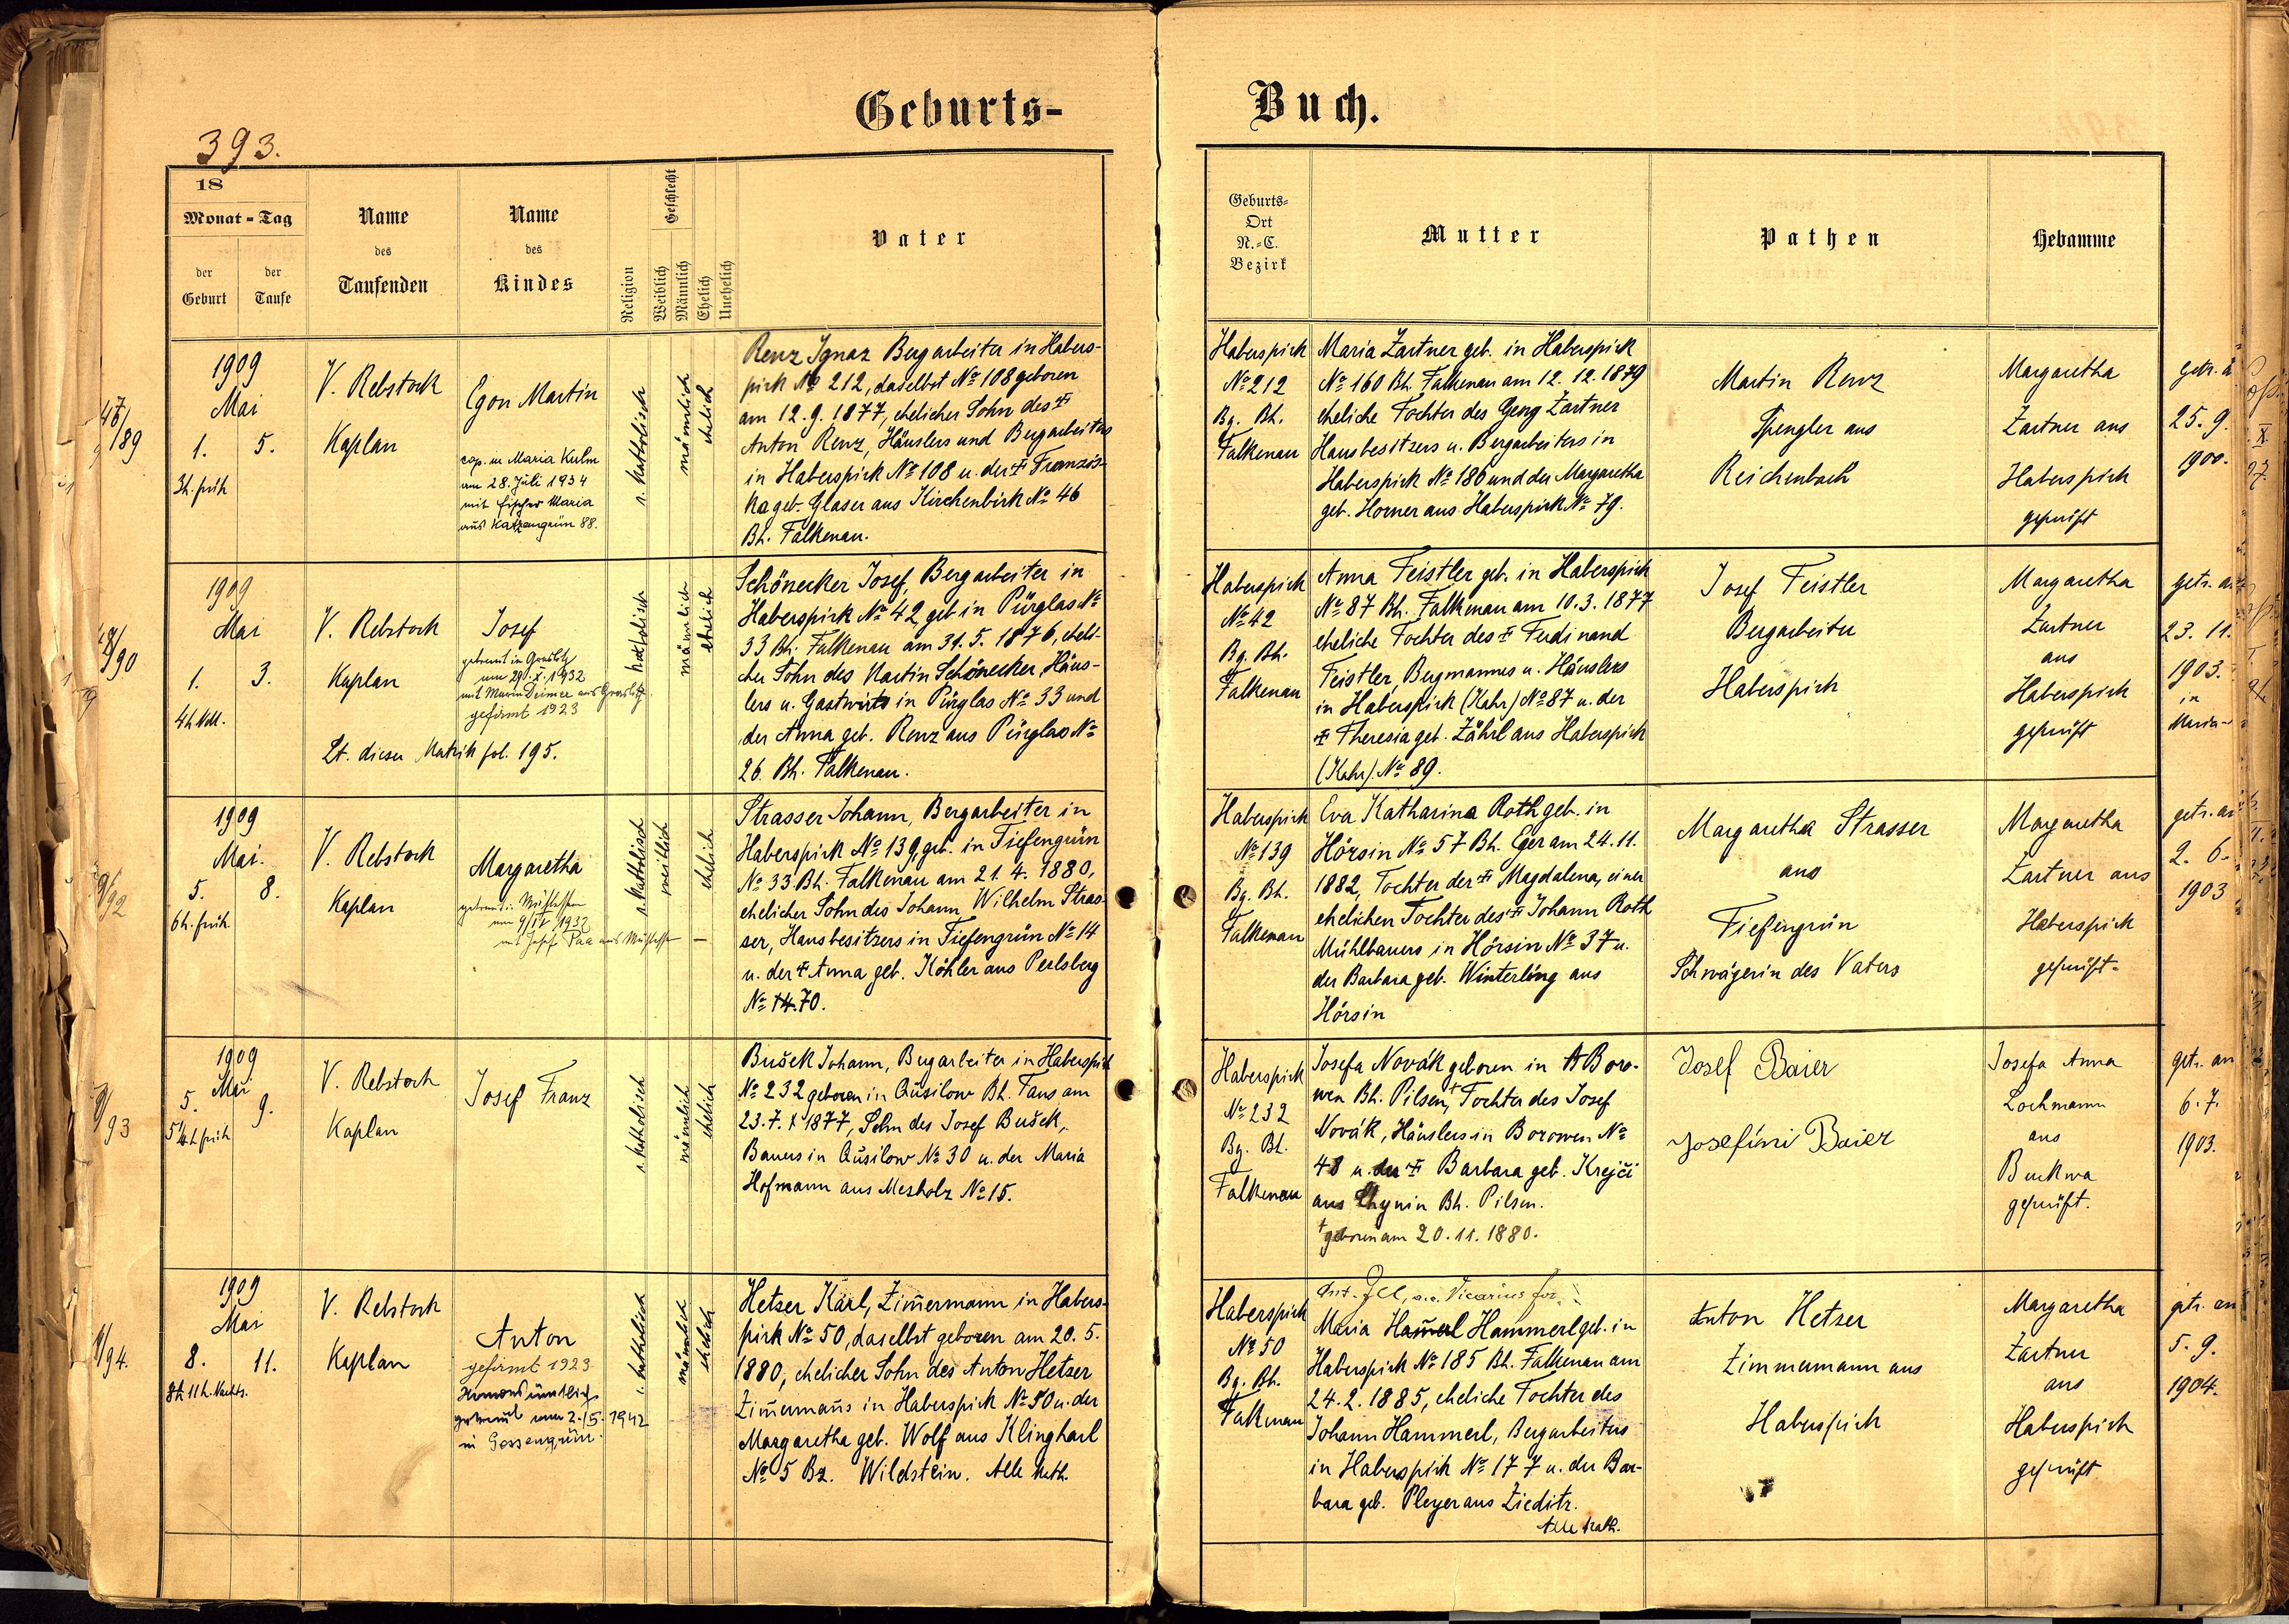 Geburts-
Buch.
393.
18
Monat - Tag
der Geburt
der Taufe
Name des Taufenden
Name des Kindes
Religion
Geschlecht
Weiblich
Männlich
Ehelich
Unehelich
Vater
Geburts-
Ort
N.-C.
Bezirk
Mutter
Pathen
Hebamme
47/
189
1909
Mai
1. 5.
3h. früh
V. Rebstock
Kaplan
Egon Martin
cop. in Maria Kulm
am 28. Juli 1934
mit Fischer Maria
aus Katzengrün 88.
r. katholisch
männlich
ehelich
Renz Ignaz Bergarbeiter in Habers-
pirk № 212, daselbst № 108 geboren
am 12. 9. 1877, ehelicher Sohn des ‡
Anton Renz, Häuslers und Bergarbeiters
in Haberspirk № 108 u. der ‡ Französ-
ka geb. Glaser aus Kirchenbirk № 46
Bh. Falkenau.
Haberspirk
№ 212
Bg. Bh.
Falkenau
Maria Zartner geb. in Haberspirk
№ 160 Bh. Falkenau am 12. 12. 1879
eheliche Tochter des Georg Zartner
Hausbesitzers u. Bergarbeiters in
Haberspirk № 186 und der Margaretha
geb. Horner aus Haberspirk № 79.
Martin Renz
Spengler aus
Reichenbach
Margaretha
Zartner aus
Haberspirk
geprüft
getr. a
25. 9.
1900.
190
1909
Mai
1. 3.
4h. NM.
V. Rebstock
Kaplan
Josef
getraut in Graslitz
am 29. X. 1932
mit Maria Deimer aus Graslitz.
gefirmt 1923
Lt. dieser Matrik fol. 195.
katholisch
männlich
ehelich
Schönecker Josef, Bergarbeiter in
Haberspirk № 42, geb in Pürglas №
33 Bh. Falkenau am 31. 5. 1876, eheli-
cher Sohn des Martin Schönecker, Häus-
lers u. Gastwirts in Pürglas № 33 und
der Anna geb. Renz aus Pürglas №
26. Bh. Falkenau.
Haberspirk
№ 42
Bg. Bh.
Falkenau
Anna Feistler geb. in Haberspirk
№ 87 Bh. Falkenau am 10. 3. 1877
eheliche Tochter des ‡ Ferdinand
Feistler, Bergmannes u. Häuslers
in Haberspirk (Kahr) № 87 u. der
‡ Theresia geb. Zährl aus Haberspirk
(Kahr). № 89.
Josef Feistler
Bergarbeiter
Haberspirk
Margaretha
Zartner
aus
Haberspirk
geprüft
getr. an
23. 11.
1903.
in
Maria-
92
1909
Mai.
5. 8.
6h. früh.
V. Rebstock
Kaplan
Margaretha
am 9/IV 1932
mit Josef Paa aus
r. katholisch
weiblich
ehelich
Strasser Johann, Bergarbeiter in
Haberspirk № 139, geb. in Tiefengrün
№ 33 Bh. Falkenau am 21. 4. 1880,
ehelicher Sohn des Johann Wilhelm Stras-
ser, Hausbesitzers in Tiefengrün № 14
u. der ‡ Anna geb. Köhler aus Perlsberg
№ 14. 70.
Haberspirk
№ 139
Bg. Bh.
Falkenau
Eva Katharina Roth geb. in
Hörsin № 57 Bh. Eger am 24. 11.
1882, Tochter der ‡ Magdalena, einer
ehelichen Tochter des ‡ Johann Roth
Mühlbauers in Hörsin № 37 u.
der Barbara geb. Winterling aus
Hörsin
Margaretha Strasser
aus
Tiefengrün
Schwägerin des Vaters
Margaretha
Zartner aus
Haberspirk
geprüft.
getr. an
2. 6.
1903
93
1909
Mai
5. 9.
5¼h früh
V. Rebstock
Kaplan
Josef Franz
r. katholisch
männlich
ehelich
Bušek Johann, Bergarbeiter in Haberspirk
№ 232 geboren in Aušilow Bh. Taus am
23. 7. 1877, Sohn des Josef Bušek,
Bauers in Aušilow № 30 u. der Maria
Hofmann aus Mesholz № 15.
Haberspirk
№ 232
Bg. Bh.
Falkenau
Josefa Novák geboren in Boro-
wen Bh. Pilsen,† Tochter des Josef
Novák, Häuslers in Borowen №
48 u. der ‡ Barbara geb. Krejči
aus Chynin Bh. Pilsen.
† geboren am 20. 11. 1880.
Josef Baier
Josefíni Baier
Josefa Anna
Lochmann
aus
Buckwa
geprüft.
getr. an
6. 7.
1903.
94.
1909
Mai
8. 11.
11 h. Nachts.
V. Rebstock
Kaplan
Anton
gefirmt 1923
getraut am 2./5. 1942
in Gossengrün.
r. katholisch
männlich
ehelich
Hetser Karl, Zim̄ermann in Habers-
pirk № 50, daselbst geboren am 20. 5.
1880, ehelicher Sohn des Anton Hetser
Zim̄ermañs in Haberspirk № 50 u. der
Margaretha geb. Wolf aus Klinghart
№ 5 Bz. Wildstein. Alle kath.
Haberspirk
№ 50
Bg. Bh.
Falkenau
Maria Ham̄erl Hammerl geb. in
Haberspirk № 185 Bh. Falkenau am
24. 2. 1885, eheliche Tochter des
Johann Hammerl, Bergarbeiters
in Haberspirk № 177 u. der Bar-
bara geb. Pleyer aus Zieditz.
Alle kath.
Anton Hetser
Zimmermann aus
Haberspirk
Margaretha
Zartner
aus
Haberspirk
geprüft
getr. an
5. 9.
1904.